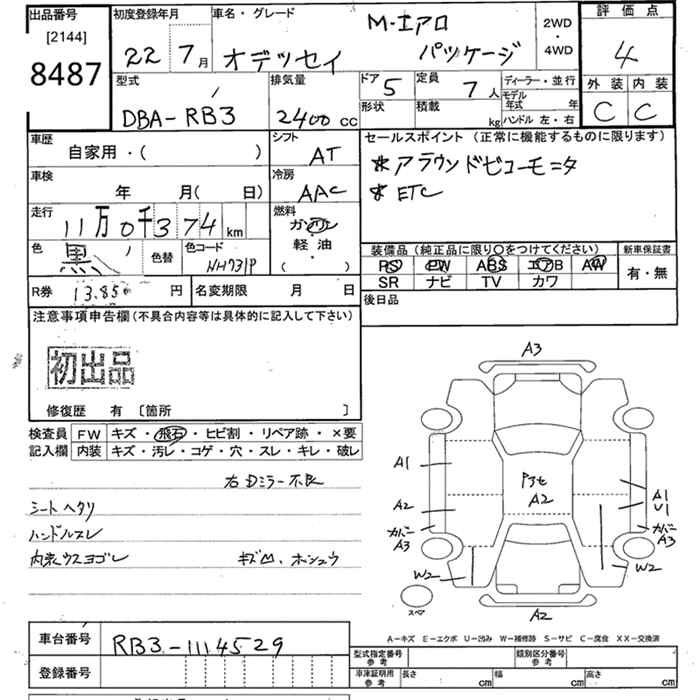 出品番号
[2144]
8487
初度登録年月
22 7月
車名・グレード
オデッセイ M・エアロ パッケージ
2WD
・
4WD
評価点
4
外装 内装
C C
型式
DBA-RB3
排気量
2400 cc
ドア 5
形状
定員 7人
積載 kg
ディーラー・並行
モデル年式 年
ハンドル 左・右
車歴
自家用・( )
シフト
AT
車検
年 月( 日)
冷房
AAC
走行
11万0千374 km
燃料
ガソリン
軽油
( )
色 黒
色替
色コード
NH731P
R券 13.850 円
名変期限 月 日
セールスポイント (正常に機能するものに限ります)
*アラウンドビューモニタ
*ETC
装備品 (純正品に限り〇をつけてください)
PS PW ABS エアB AW
SR ナビ TV カワ
新車保証書
有・無
後日品
注意事項申告欄 (不具合内容等は具体的に記入して下さい)
初出品
修復歴 有 [箇所 ]
検査員 FW キズ・飛石・ヒビ割・リペア跡・×要
記入欄 内装 キズ・汚レ・コゲ・穴・スレ・キレ・破レ
右Dミラー不良
シートヘタリ
ハンドルスレ
内装ウスヨゴレ
A3
A1
A2
カバー
A3
W2
A2
A1
U1
カバー
A3
W2
スペア
A2
A-キズ E-エクボ U-凹み W-補修跡 S-サビ C-腐食 XX-交換済
車台番号 RB3-1114529
登録番号
型式指定番号
参考
類別区分番号
参考
車庫証明用
参考
長さ cm
幅 cm
高さ cm